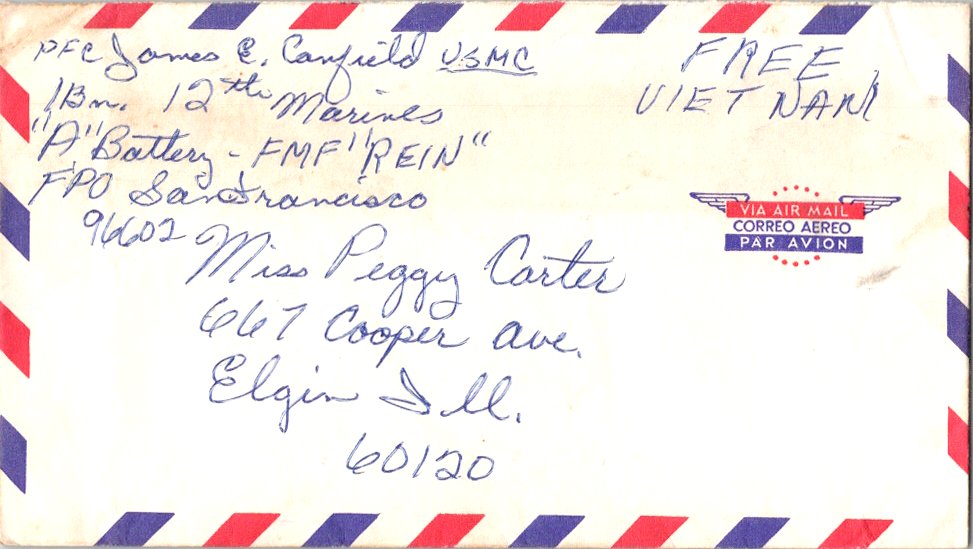 PFC James E. Canfield USMC
1Bn. 12th Marines
"A" Battery - FMF "REIN"
FPO San Francisco
96602
FREE
VIET NAM
VIA AIR MAIL
CORREO AEREO
PAR AVION
Miss Peggy Carter
667 Cooper Ave.
Elgin Ill.
60120